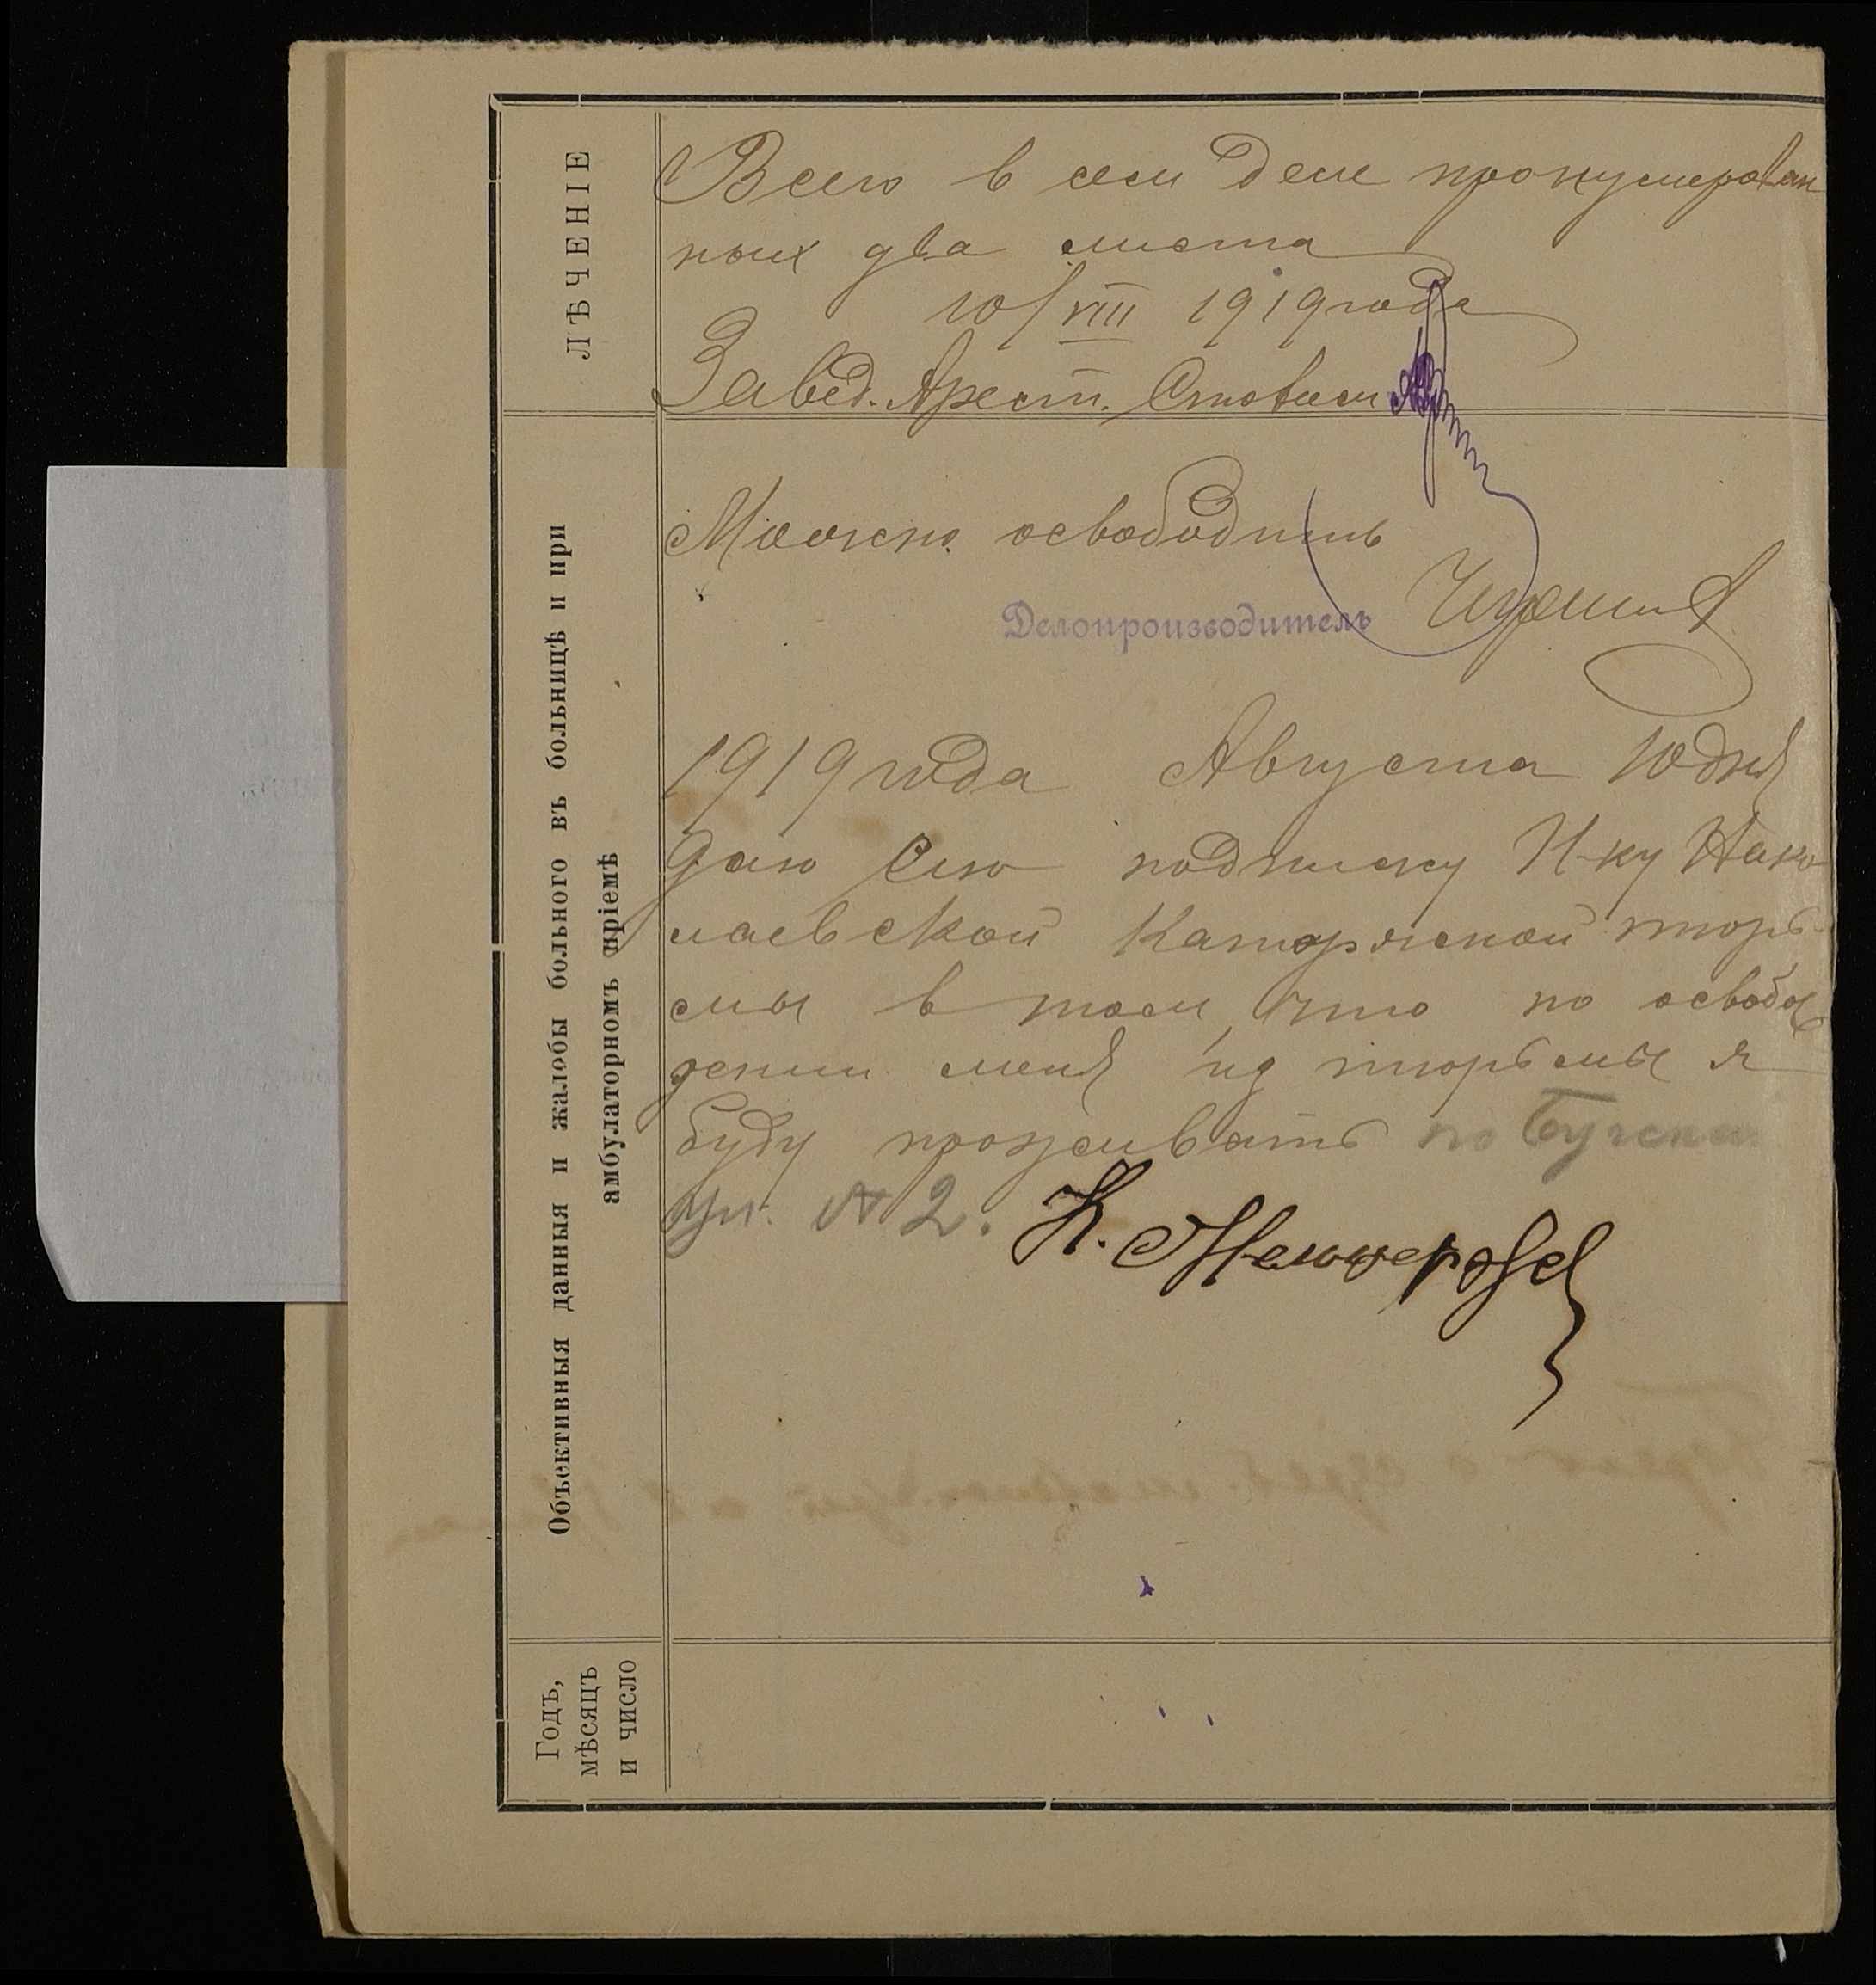 ЛѢЧЕНІЕ
Всего в сем деле пронумерован
ных два листа
10/VIII 1919 года
Завед. Арест. Столом
Можно освободить
Делопроизводитель
1919 года Августа 10 дня
Даю сию подписку Н-ку Нико
лаевской Каторжной тюрь
мы в том, что по освобо
ждении меня из тюрьмы я
буду проживать по
ул. № 2.
К.
Объективныя данныя и жалобы больного въ больницѣ и при
амбулаторномъ пріемѣ
Годъ,
мѣсяцъ
и число